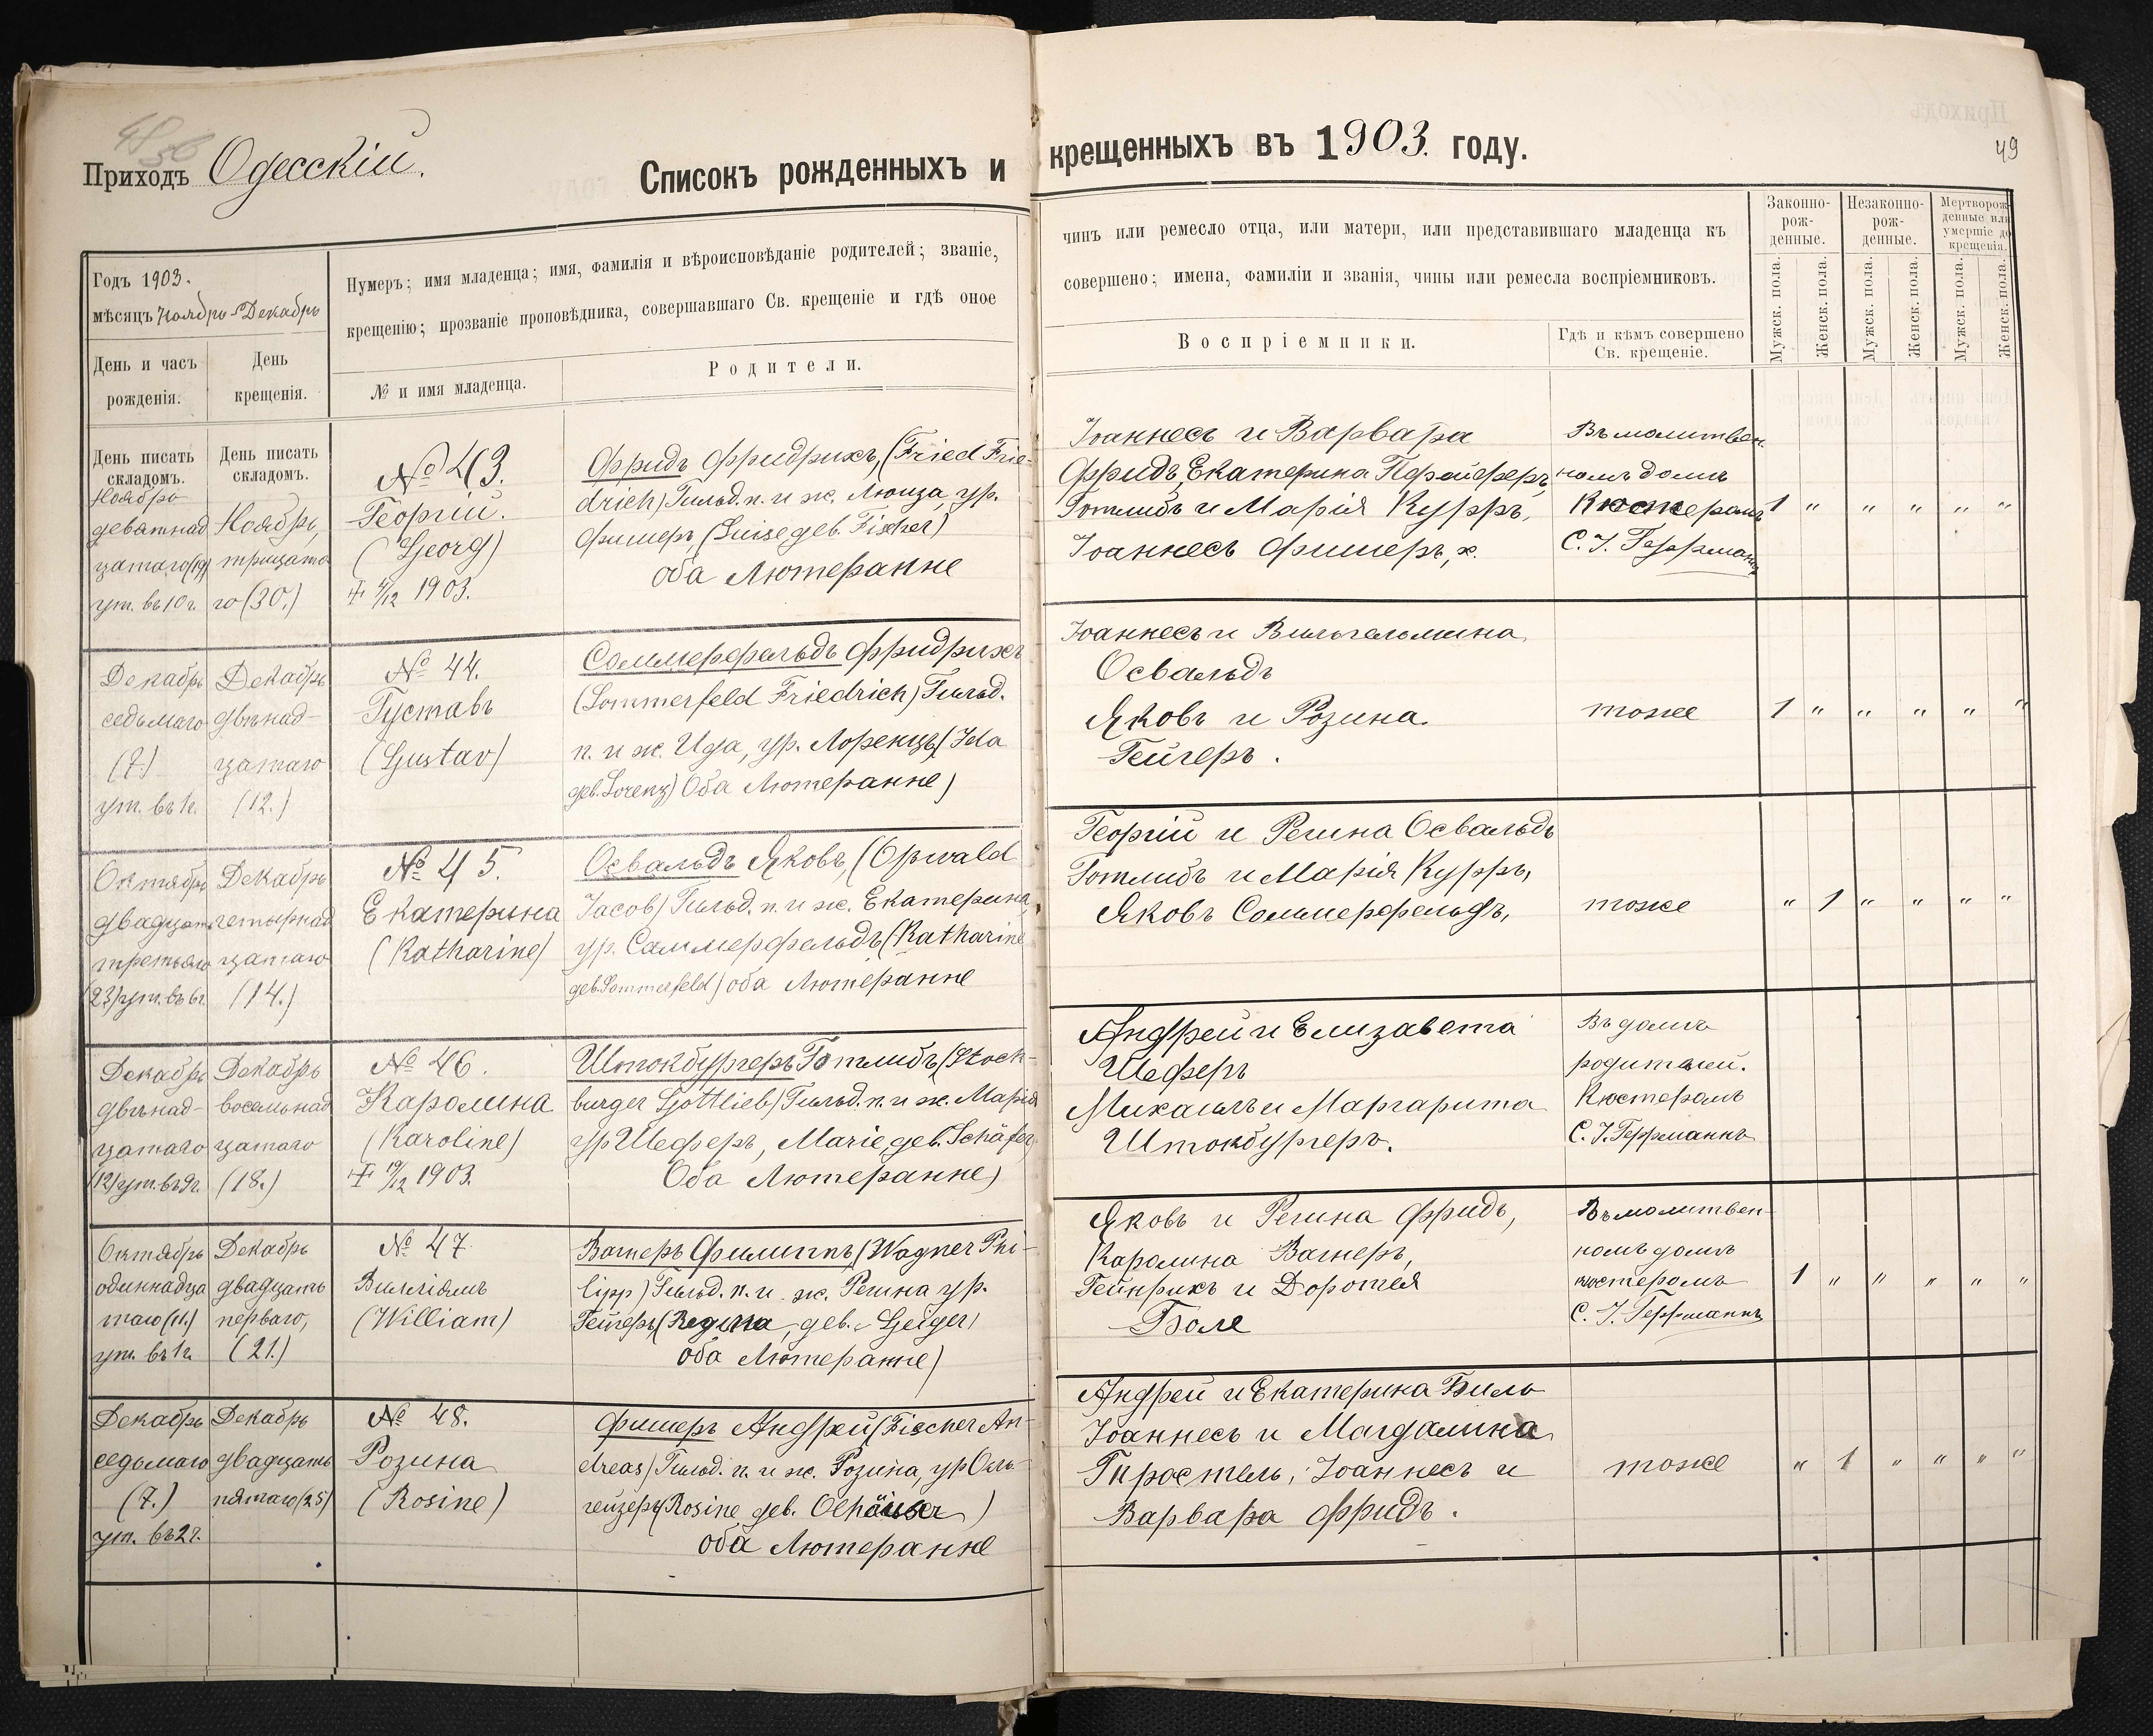 Приходъ Одесскій.
Списокъ рожденныхъ и крещенныхъ въ 1903. году.
49
Годъ 1903.
мѣсяцъ Ноябрь-Декабрь
Нумеръ; имя младенца; имя, фамилія и вѣроисповѣданіе родителей; званіе,
крещенію; прозваніе проповѣдника, совершавшаго Св. крещеніе и гдѣ оное
чинъ или ремесло отца, или матери, или представившаго младенца къ
совершено; имена, фамиліи и званія, чины или ремесла воспріемниковъ.
Законно-
рож-
денные.
Незаконно-
рож-
денные.
Мертворож-
денные или
умершіе до
крещенія.
Мужск. пола.
Женск. пола.
Мужск. пола.
Женск. пола.
Мужск. пола.
Женск. пола.
День и часъ
рожденія.
День
крещенія.
№ и имя младенца.
Родители.
Воспріемники.
Гдѣ и кѣмъ совершено
Св. крещеніе.
День писать
складомъ.
День писать
складомъ.
Ноябрь
девятнад
цатаго (19)
ут. въ 10 ч.
Ноябрь,
тридцата
го (30.)
№ 43.
Георгій.
(Georg)
1903.
Фридъ Фридрихъ, (Fried Frie-
drich) Гильд. п. и ж. Люиза, ур.
Фишеръ, (Luise geb. Fischer)
оба Лютеранне
Іоаннесъ и Варвара
Фридъ, Екатерина Пфейферъ,
Готлибъ и Марія Курръ,
Іоаннесъ Фишеръ, х.
Въ молитвен-
номъ домѣ
Кюстеромъ
С. І. Геррманнъ
1 " " " " "
Декабрь
седьмаго
(7.)
ут. въ 1 ч.
Декабрь
двѣнад-
цатаго
(12.)
№ 44.
Густавъ
(Gustav)
Соммерфельдъ Фридрихъ
(Sommerfeld Friedrich) Гильд.
п. и ж. Ида, ур. Лоренцъ (Ida
geb. Lorenz) Оба Лютеранне)
Іоаннесъ и Вильгельмина
Освальдъ
Яковъ и Розина
Гейгеръ.
тоже
1 " " " " "
Октябрь
двадцать
третьяго
(23) ут. въ 6 ч.
Декабрь
четырнад
цатаго
(14.)
№ 45.
Екатерина
(Katharine)
Освальдъ Яковъ, (Oswald
Jacob) Гильд. п. и ж. Екатерина,
ур. Соммерфельдъ (Katharine
geb. Sommerfeld) оба Лютеранне
Георгій и Регина Освальдъ
Готлибъ и Марія Курръ,
Яковъ Соммерфельдъ,
тоже
" 1 " " " "
Декабрь
двѣнад-
цатаго
(12) ут. въ 9 ч.
Декабрь
восемьнад
цатаго
(18.)
№ 46.
Каролина
(Karoline)
19/12 1903.
Штокбургеръ Готлибъ, (Stock-
burger Gottlieb) Гильд. п. и ж. Марія
ур Шеферъ, Marie geb. Schäfer
Оба Лютеранне)
Андрей и Елизавета
Шеферъ
Михаилъ и Маргарита
Штокбургеръ.
Въ домѣ
родителей.
Кюстеромъ
С. І. Геррманнъ
Октябрь
одиннадца
таго (11.)
ут. въ 1 ч.
Декабрь
двадцать
перваго,
(21.)
№ 47
Вилліямъ
(William)
Вагнеръ Филиппъ, (Wagner Phi-
lipp) Гильд. п. и ж. Регина ур.
Гейгеръ, (Regina, geb. Geiger)
оба Лютеранне)
Яковъ и Регина Фридъ,
Каролина Вагнеръ,
Гейнрихъ и Доротея
Боле
Въ молитвен-
номъ домѣ
кюстеромъ
С. І. Геррманнъ
1 " " " " "
Декабрь
седьмаго
(7.)
ут. въ 2 ч.
Декабрь
двадцать
пятаго (25)
№ 48.
Розина
(Rosine)
Фишеръ Андрей (Fischer An-
dreas) Гильд. п. и ж. Розина, ур Оль-
гейзеръ (Rosine geb. Olhäuser)
оба Лютеранне
Андрей и Екатерина Биль
Іоаннесъ и Магдалина
Іоаннесъ и
Варвара Фридъ.
тоже
" 1 " " " "